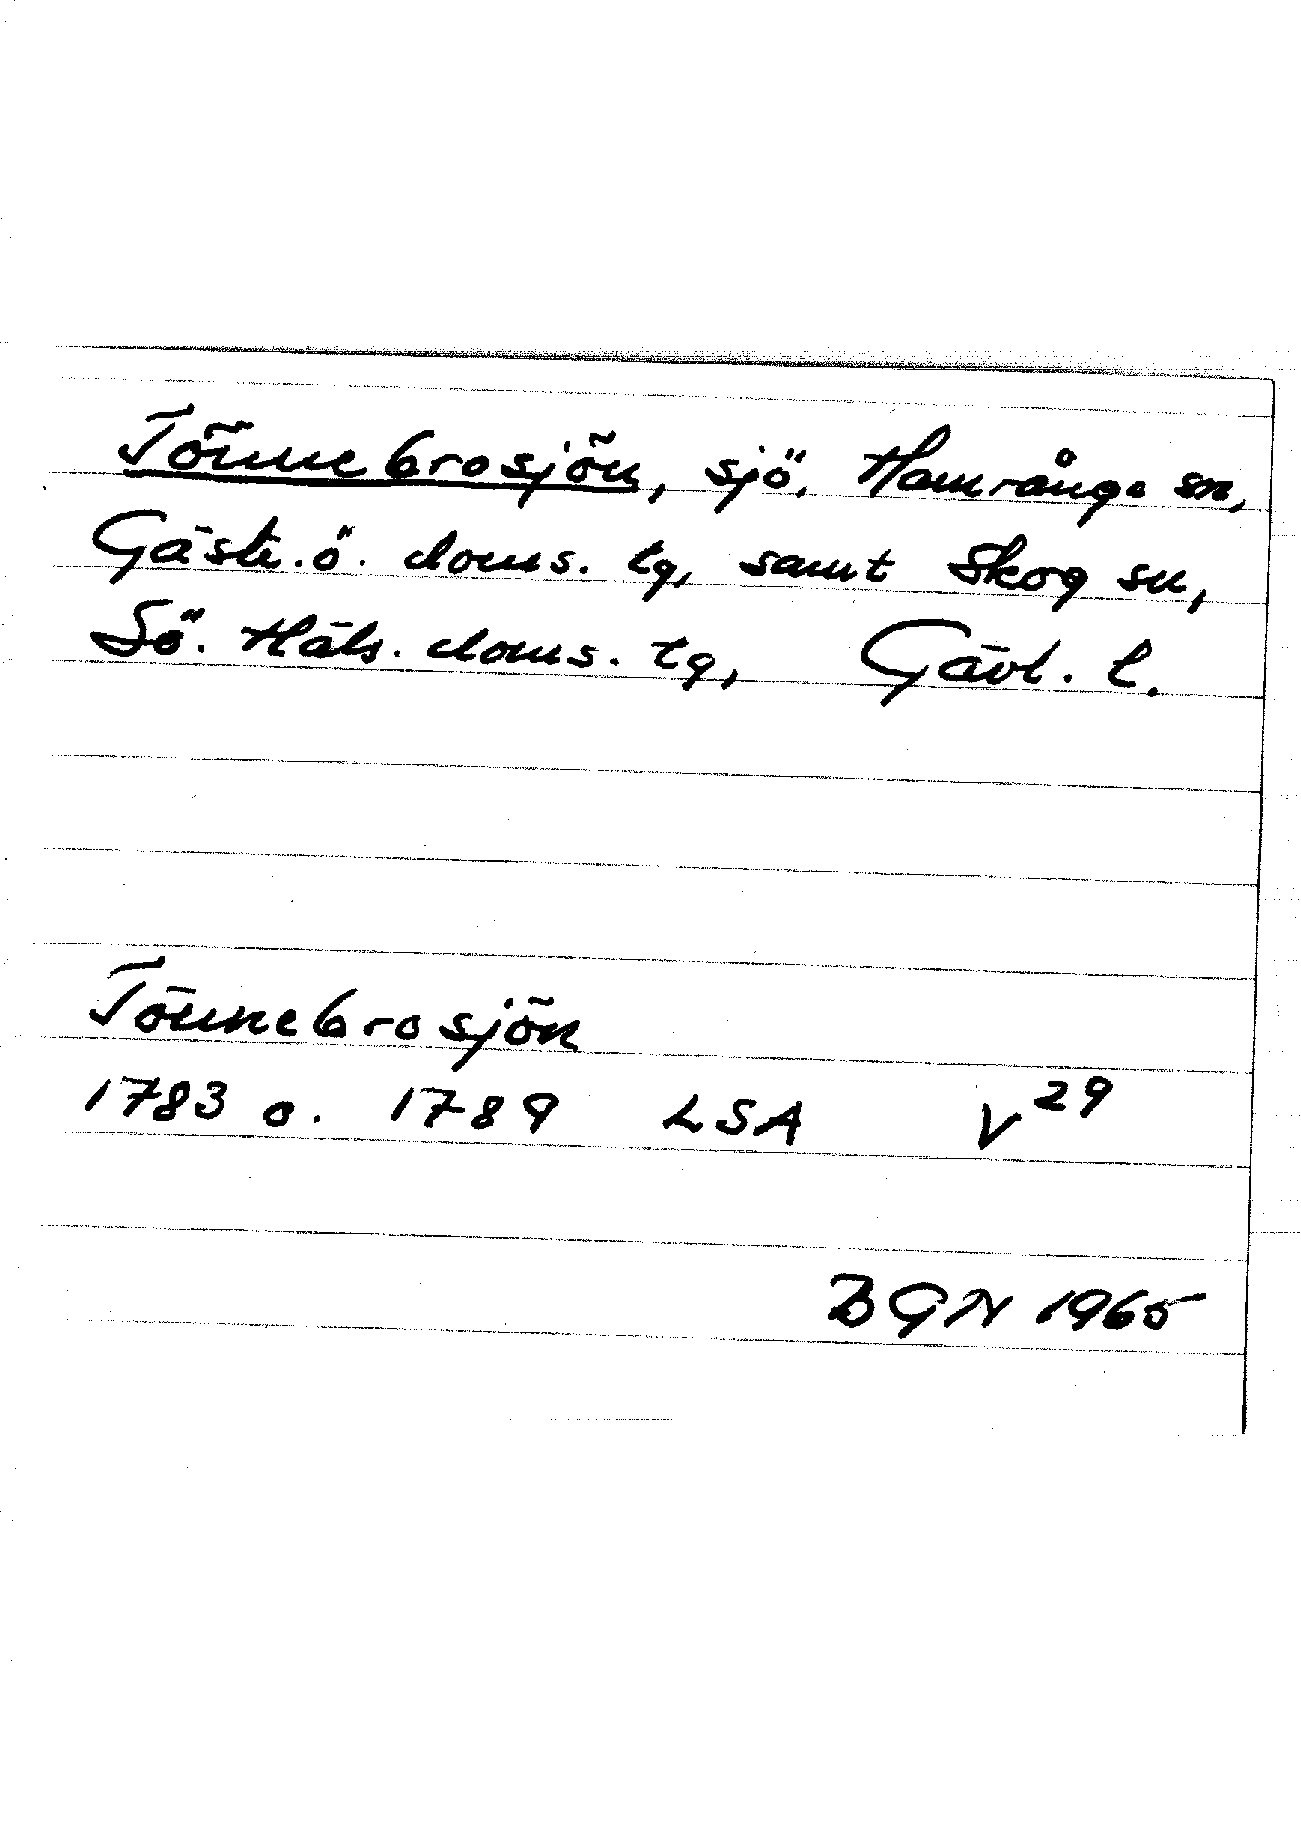 Tönnebrosjön, sjö, Hamrånge sn,
Gästr. ö. doms. tg, samt Skog sn,
Sö. Häls. doms. tg, Gävl. l.
Tönnebrosjön
1783 o. 1789 LSA V 29
BGN 1965